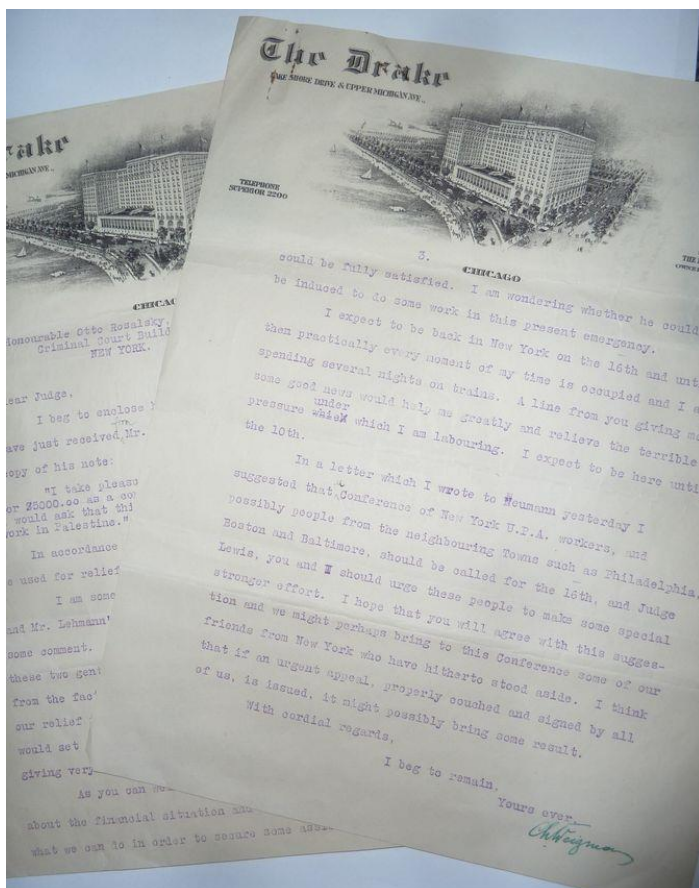 The Drake
LAKE SHORE DRIVE & UPPER MICHIGAN AVE..
TELEPHONE
SUPERIOR 2200
CHICAGO
3.
could be fully satisfied. I am wondering whether he could
be induced to do some work in this present emergency.
I expect to be back in New York on the 16th and unt
then practically every moment of my time is occupied and I a
spending several nights on trains. A line from you giving me
some good news would help me greatly and relieve the terrible
under
pressure which which I am labouring. I expect to be here unti
the 10th.
In a letter which I wrote to Neumann yesterday I
suggested that Conference of New York U.P.A. workers, and
possibly people from the neighbouring Towns such as Philadelphia,
Boston and Baltimore, should be called for the 16th, and Judge
Lewis, you and I should urge these people to make some special
stronger effort. I hope that you will agree with this sugges-
tion and we might perhaps bring to this Conference some of our
friends from New York who have hitherto stood aside. I think
that if an urgent appeal, properly couched and signed by all
of us, is issued, it might possibly bring some result.
With cordial regards,
I beg to remain,
Yours ever,
rake
MICHIGAN AVE..
CHICAG
Honourable Otto Rosalsky,
Criminal Court Build
NEW YORK.
ear Judge,
I beg to enclose
ave just received Mr.
opy of his note:
"I take pleas
or $5000.00 as a co
would ask that thi
ork in Palestine."
In accordance
e used for relief
I am some
and Mr. Lehmann'
some comment.
these two gent
from the fac
our relief
would set
giving very
As you can
about the financial situation and
what we can do in order to secure some assi